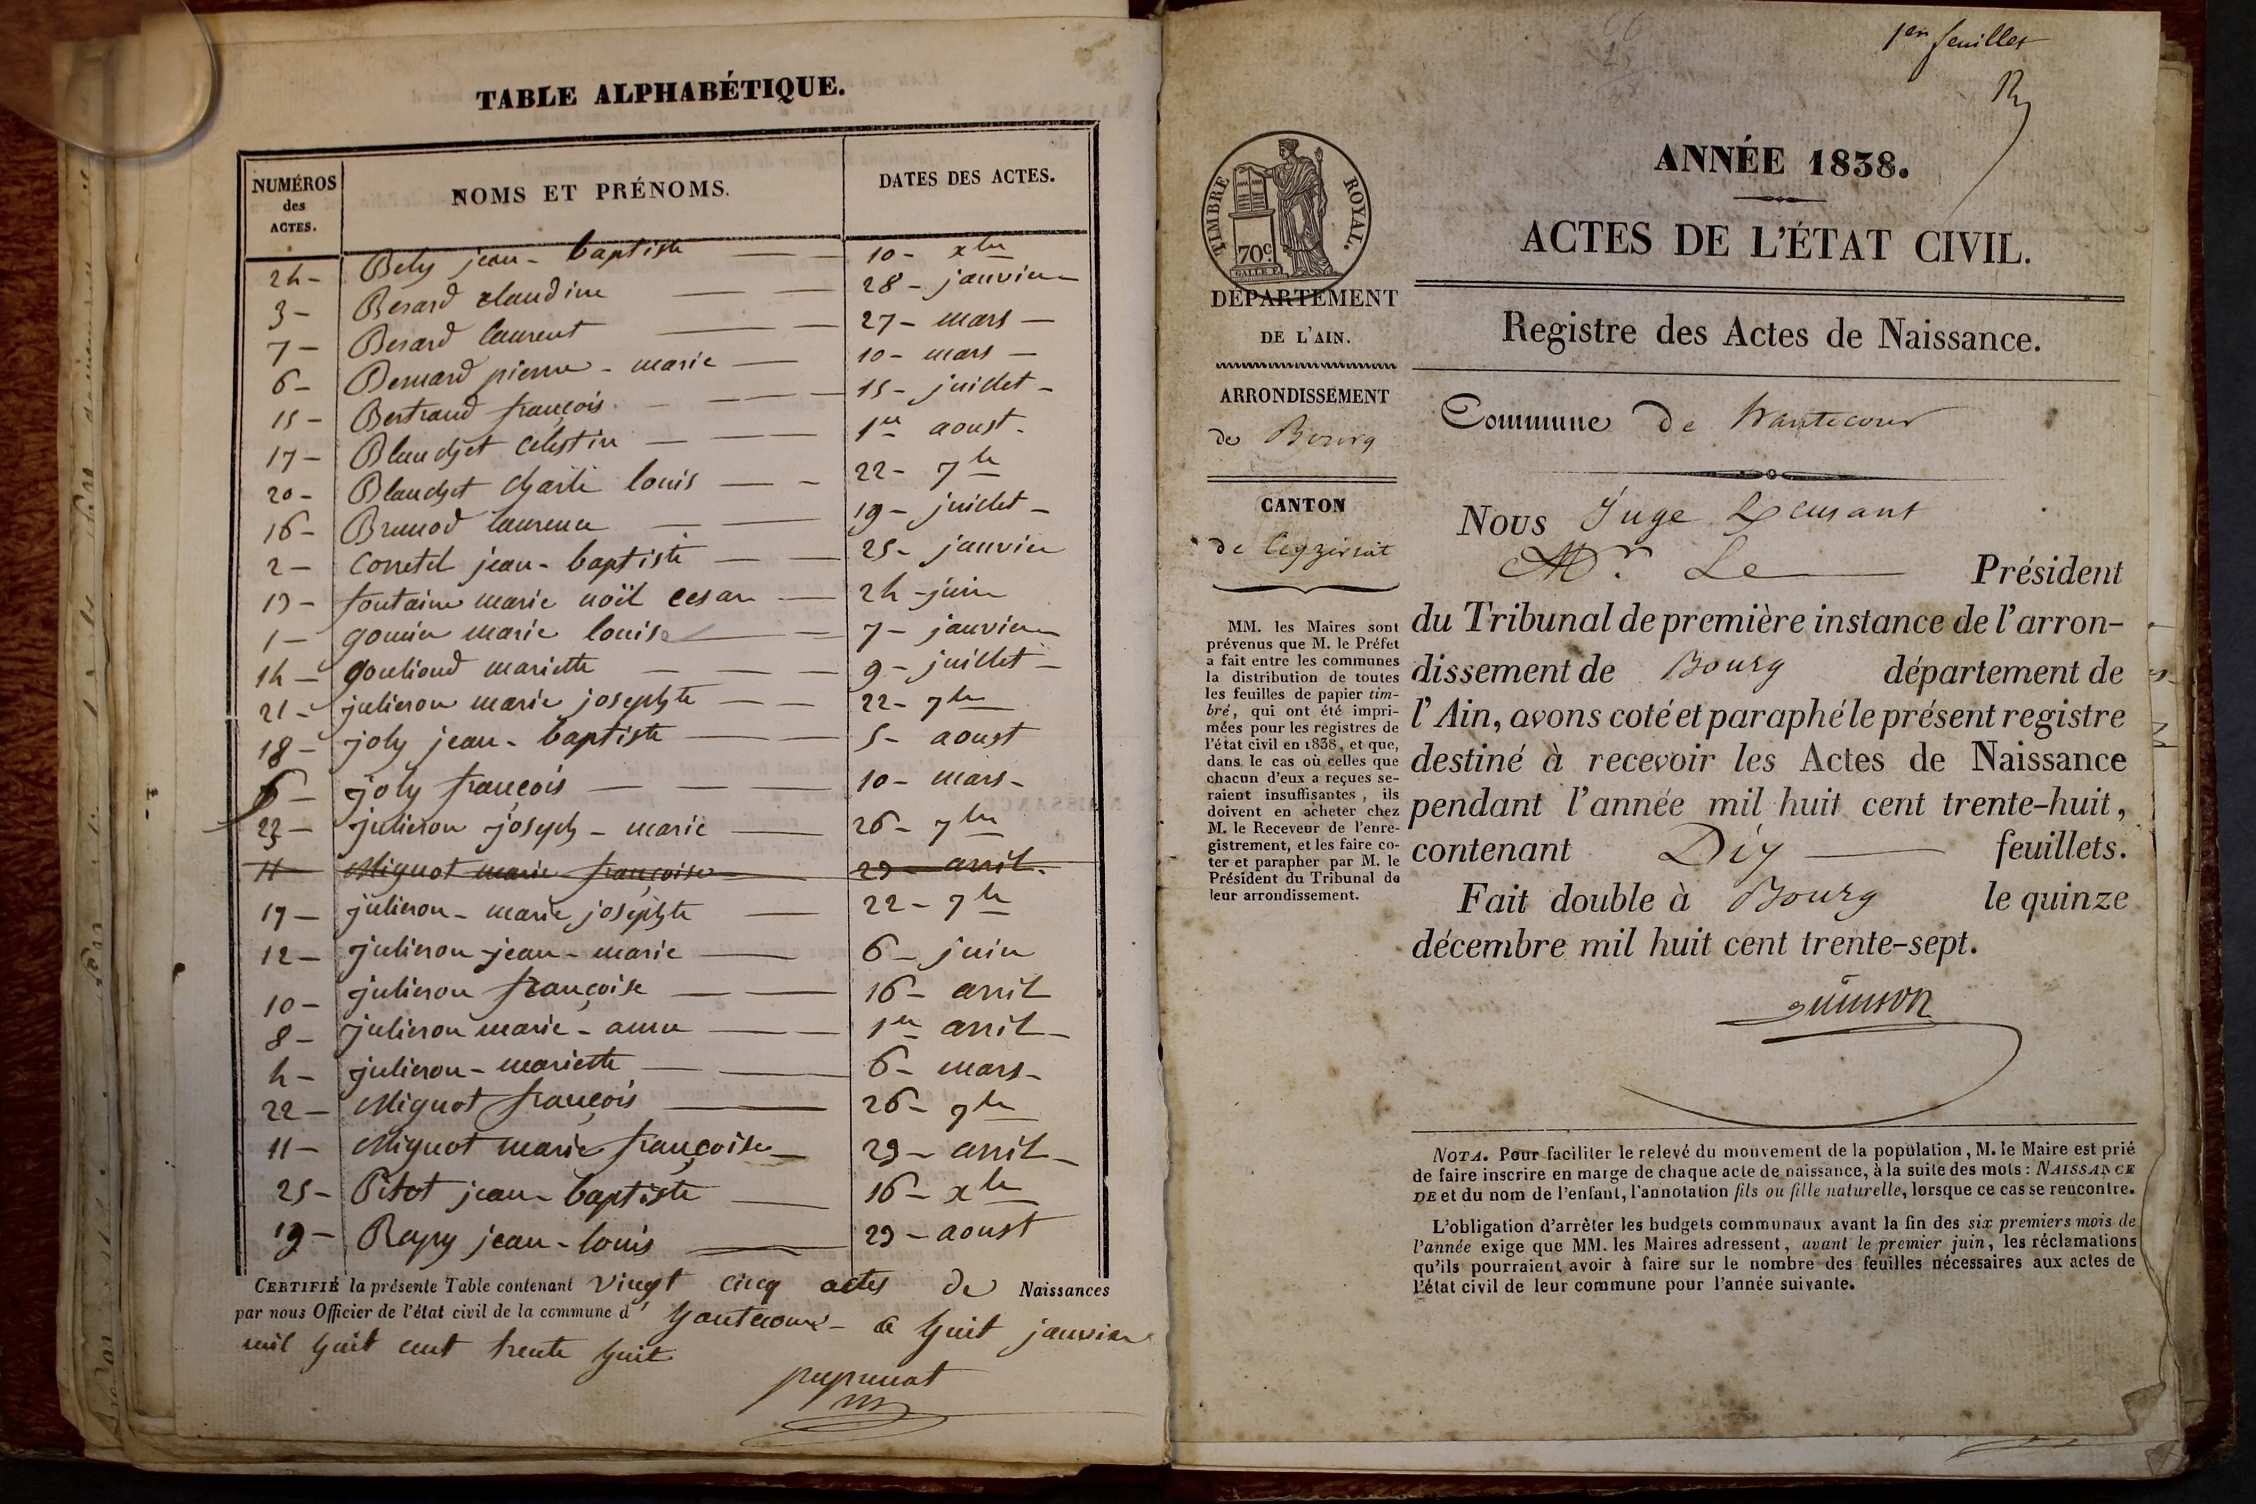 TABLE ALPHABÉTIQUE.
NUMÉROS des ACTES. NOMS ET PRÉNOMS. DATES DES ACTES.
24 - Bely jean - baptiste 10 - xbre
3 - Besard claudine 28 - janvier
7 - Besard laurent 27 - mars
6 - Bernard pierre - marie 10 - mars
15 - Bertrand françois 15 - juillet
17 - Blanchet Celestin 1er aoust
20 - Blanchet charle louis 22 - 7bre
16 - Brunod laurence 19 - juillet
2 - Corretel jean - baptiste 25 - janvier
13 - fontaine marie noël cesar 24 - juin
1 - gomin marie louise 7 - janvier
14 - goulioud mariette 9 - juillet
21 - julieron marie josephte 22 - 7bre
18 - joly jean - baptiste 5 - aoust
6 - joly françois 10 - mars
23 - julieron joseph - marie 26 - 7bre
11 Miguot marie françoise 29 - avril
19 - julieron - marie josephte 22 - 7bre
12 - julieron jean - marie 6 - juin
10 - julieron françoise 16 - avril
8 - julieron marie - anne 1er avril
4 - julieron - mariette 6 - mars
22 - Miguot françois 26 - 9bre
11 - Miguot marie françoise 29 - avril
25 - Pitiot jean - baptiste 16 - xbre
19 - Rapy jean - louis 29 - aoust
CERTIFIÉ la présente Table contenant vingt cinq actes de Naissances
par nous Officier de l'état civil de la commune d' hautecour - a huit janvier
mil huit cent trente huit
1er feuillet
ANNÉE 1838.
ACTES DE L'ÉTAT CIVIL.
Registre des Actes de Naissance.
TIMBRE ROYAL.
70c.
GALLE F.
DÉPARTEMENT
DE L'AIN.
ARRONDISSEMENT
de Bourg
CANTON
de Ceyzeriat
MM. les Maires sont
prévenus que M. le Préfet
a fait entre les communes
la distribution de toutes
les feuilles de papier tim-
bré, qui ont été impri-
mées pour les registres de
l'état civil en 1838, et que,
dans le cas où celles que
chacun d'eux a reçues se-
raient insuffisantes, ils
doivent en acheter chez
M. le Receveur de l'enre-
gistrement, et les faire co-
ter et parapher par M. le
Président du Tribunal de
leur arrondissement.
Commune de hautecour
Nous Juge
Mr. Le Président
du Tribunal de première instance de l'arron-
dissement de Bourg département de
l'Ain, avons coté et paraphé le présent registre
destiné à recevoir les Actes de Naissance
pendant l'année mil huit cent trente-huit,
contenant Dix feuillets.
Fait double à Bourg le quinze
décembre mil huit cent trente-sept.
NOTA. Pour faciliter le relevé du mouvement de la population, M. le Maire est prié
de faire inscrire en marge de chaque acte de naissance, à la suite des mots : NAISSANCE
DE et du nom de l'enfant, l'annotation fils ou fille naturelle, lorsque ce cas se rencontre.
L'obligation d'arrêter les budgets communaux avant la fin des six premiers mois de
l'année exige que MM. les Maires adressent, avant le premier juin, les réclamations
qu'ils pourraient avoir à faire sur le nombre des feuilles nécessaires aux actes de
l'état civil de leur commune pour l'année suivante.